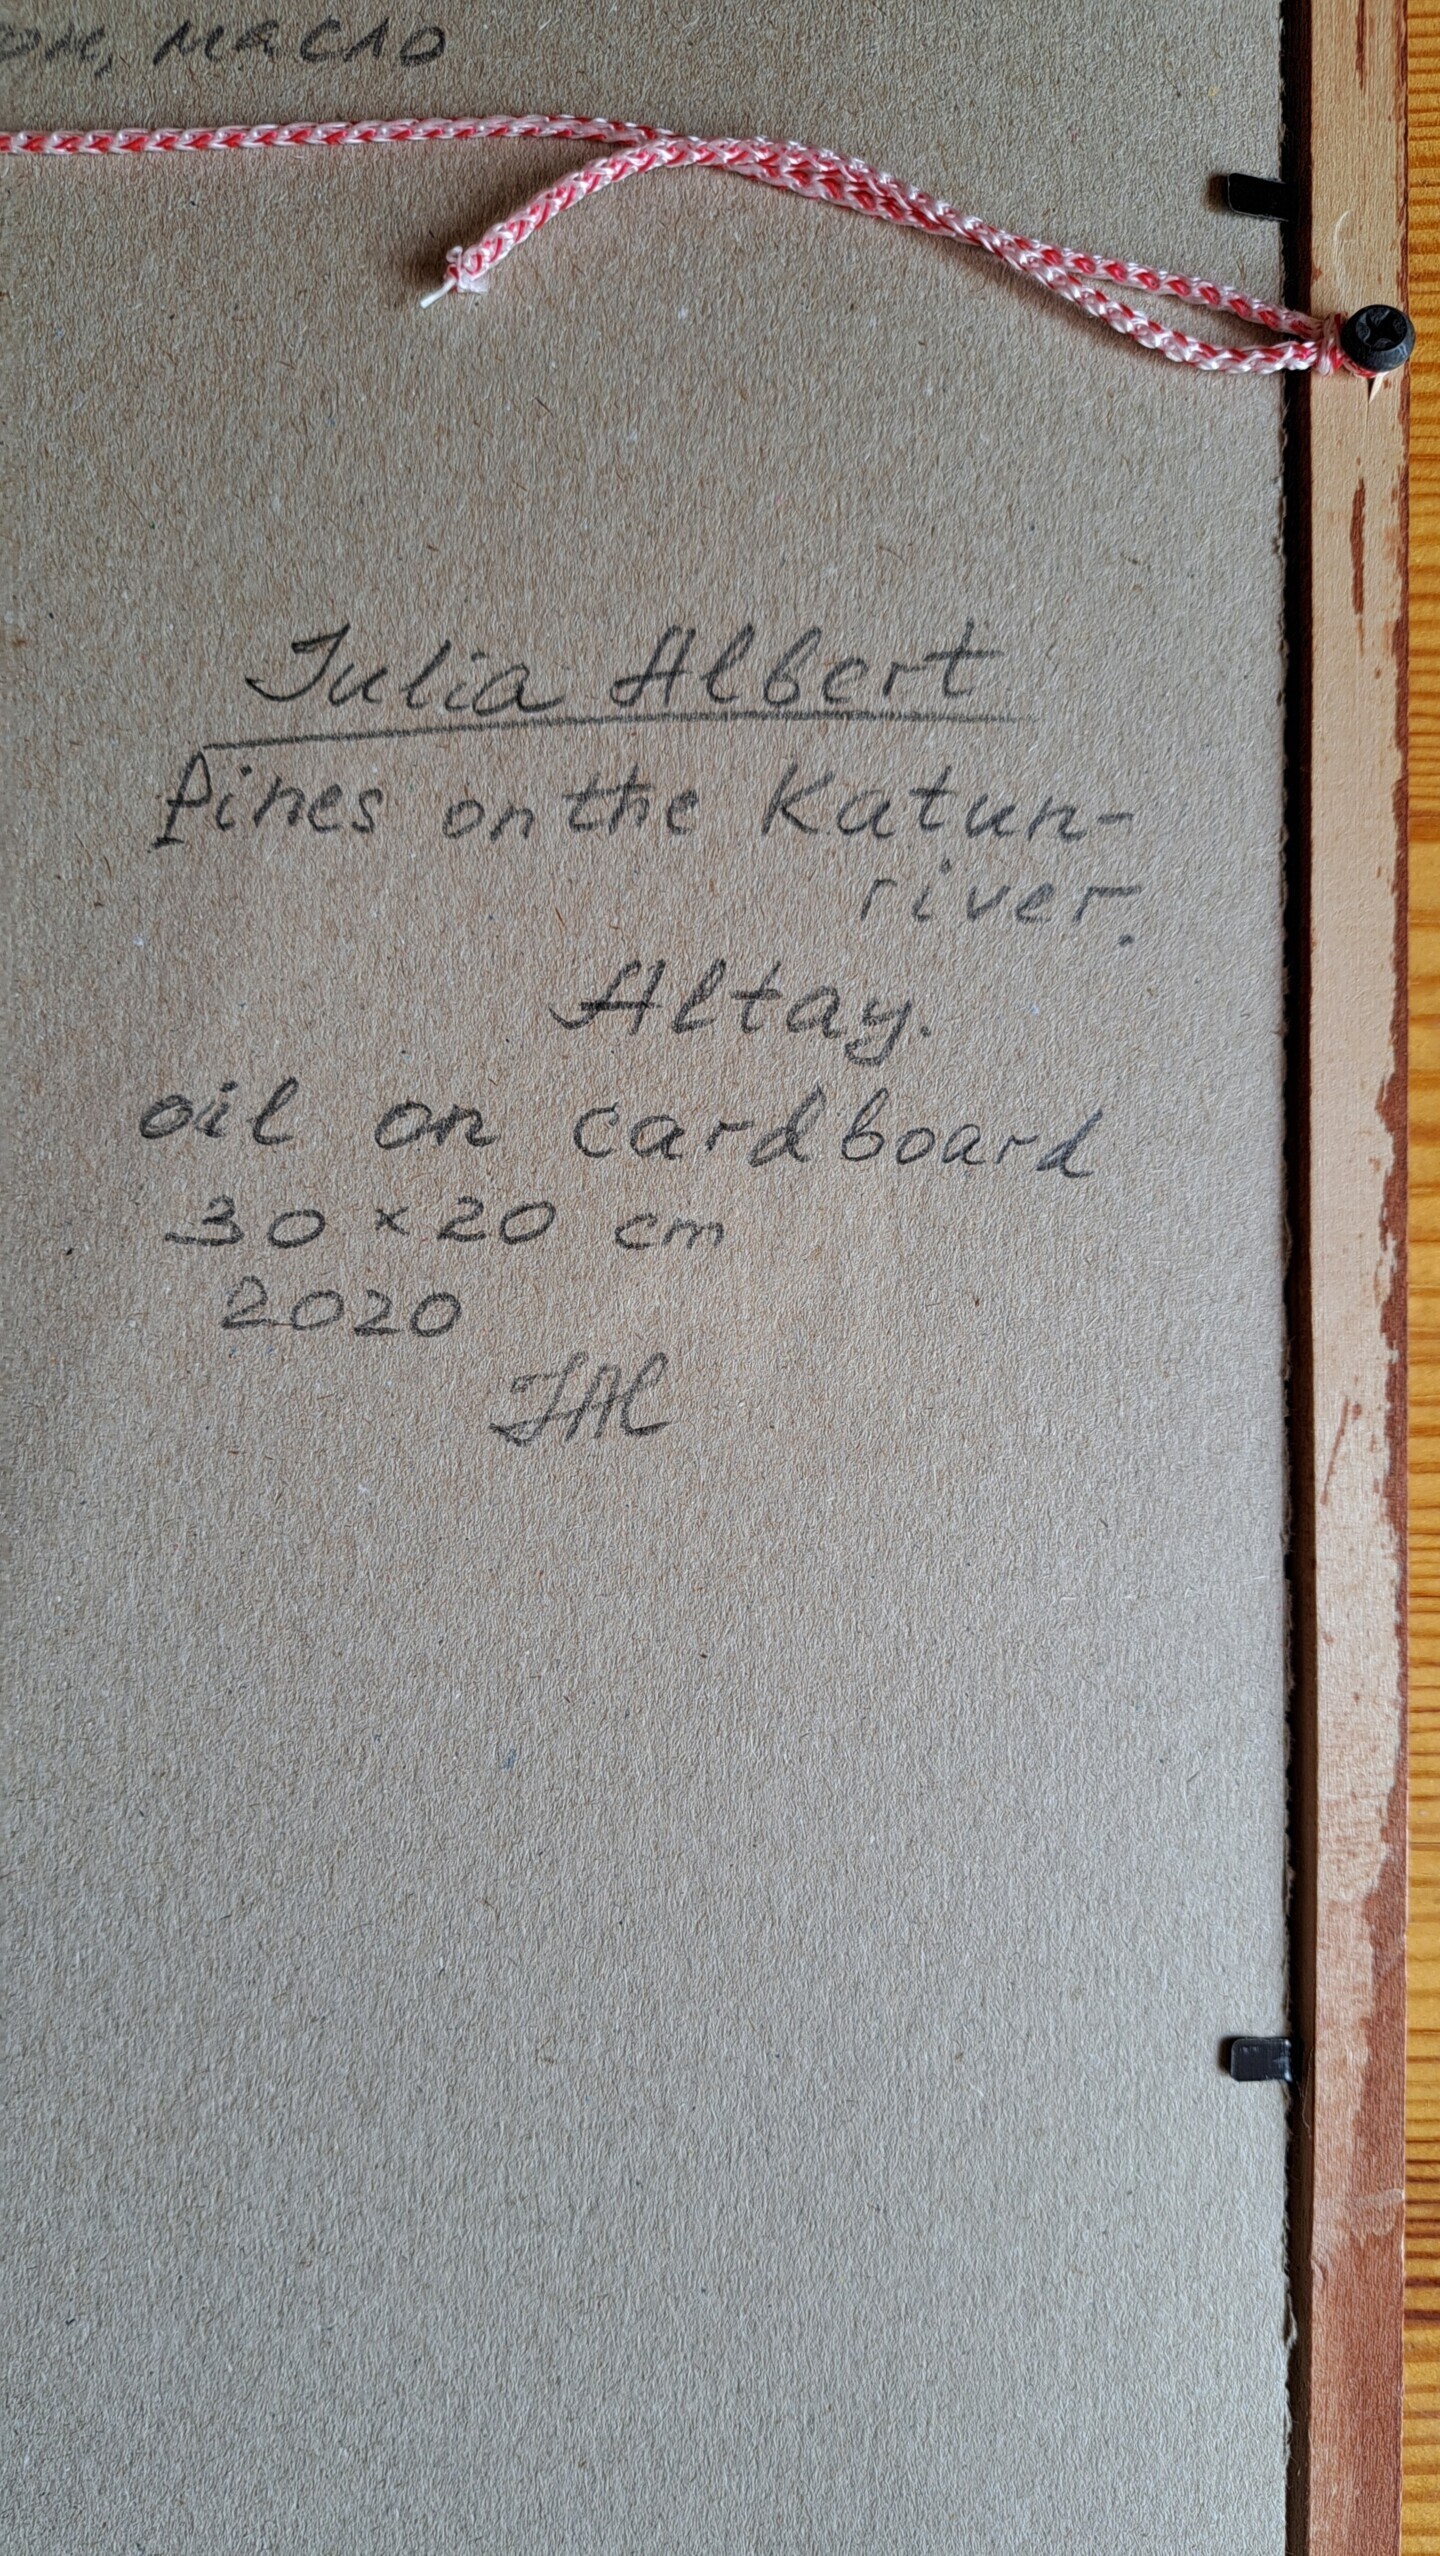 масло
Julia Albert
Pines on the Katun-
river.
Altay.
oil on cardboard
30 × 20 cm
2020
JAl